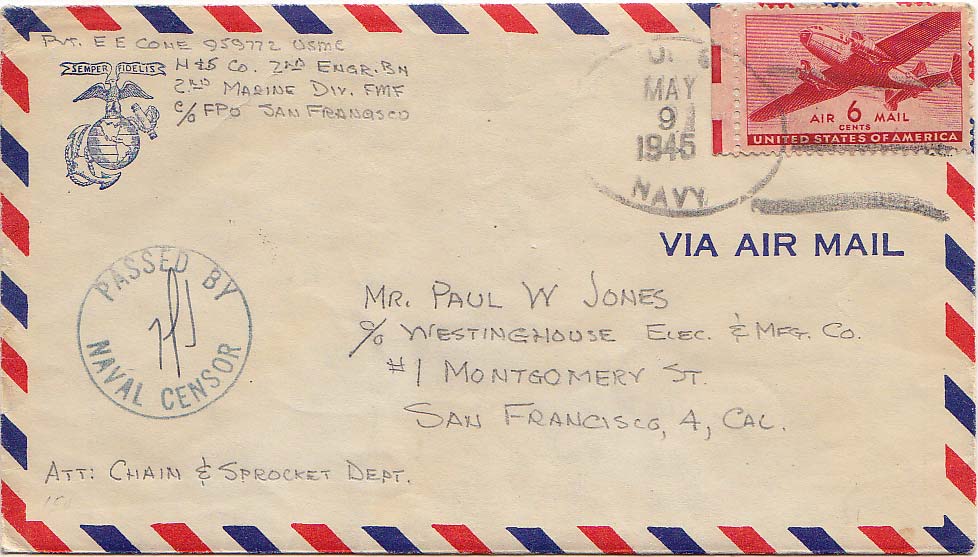 Pvt. E E Cone 959772 USMC
H&S Co. 2nd Engr. Bn
2nd Marine Div. FMF
c/o FPO San Francisco
SEMPER FIDELIS
U.
MAY
9
1945
NAVY
AIR 6 MAIL
CENTS
UNITED STATES OF AMERICA
VIA AIR MAIL
PASSED BY
NAVAL CENSOR
Mr. Paul W Jones
c/o Westinghouse Elec. & Mfg. Co.
#1 Montgomery St.
San Francisco, 4, Cal.
Att: Chain & Sprocket Dept.